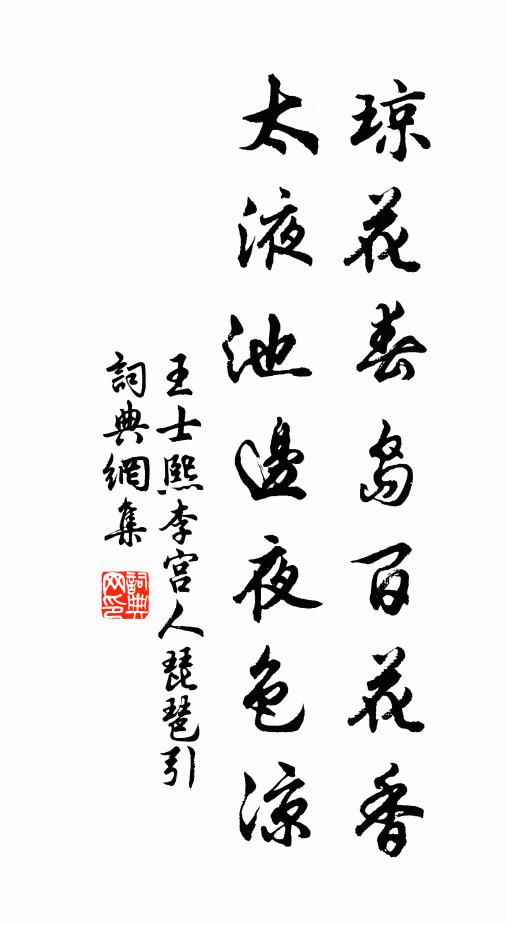 琼花春岛百花香
太液池邊夜色涼
王士熙李宮人琵琶引
詞典網集
詞典網印